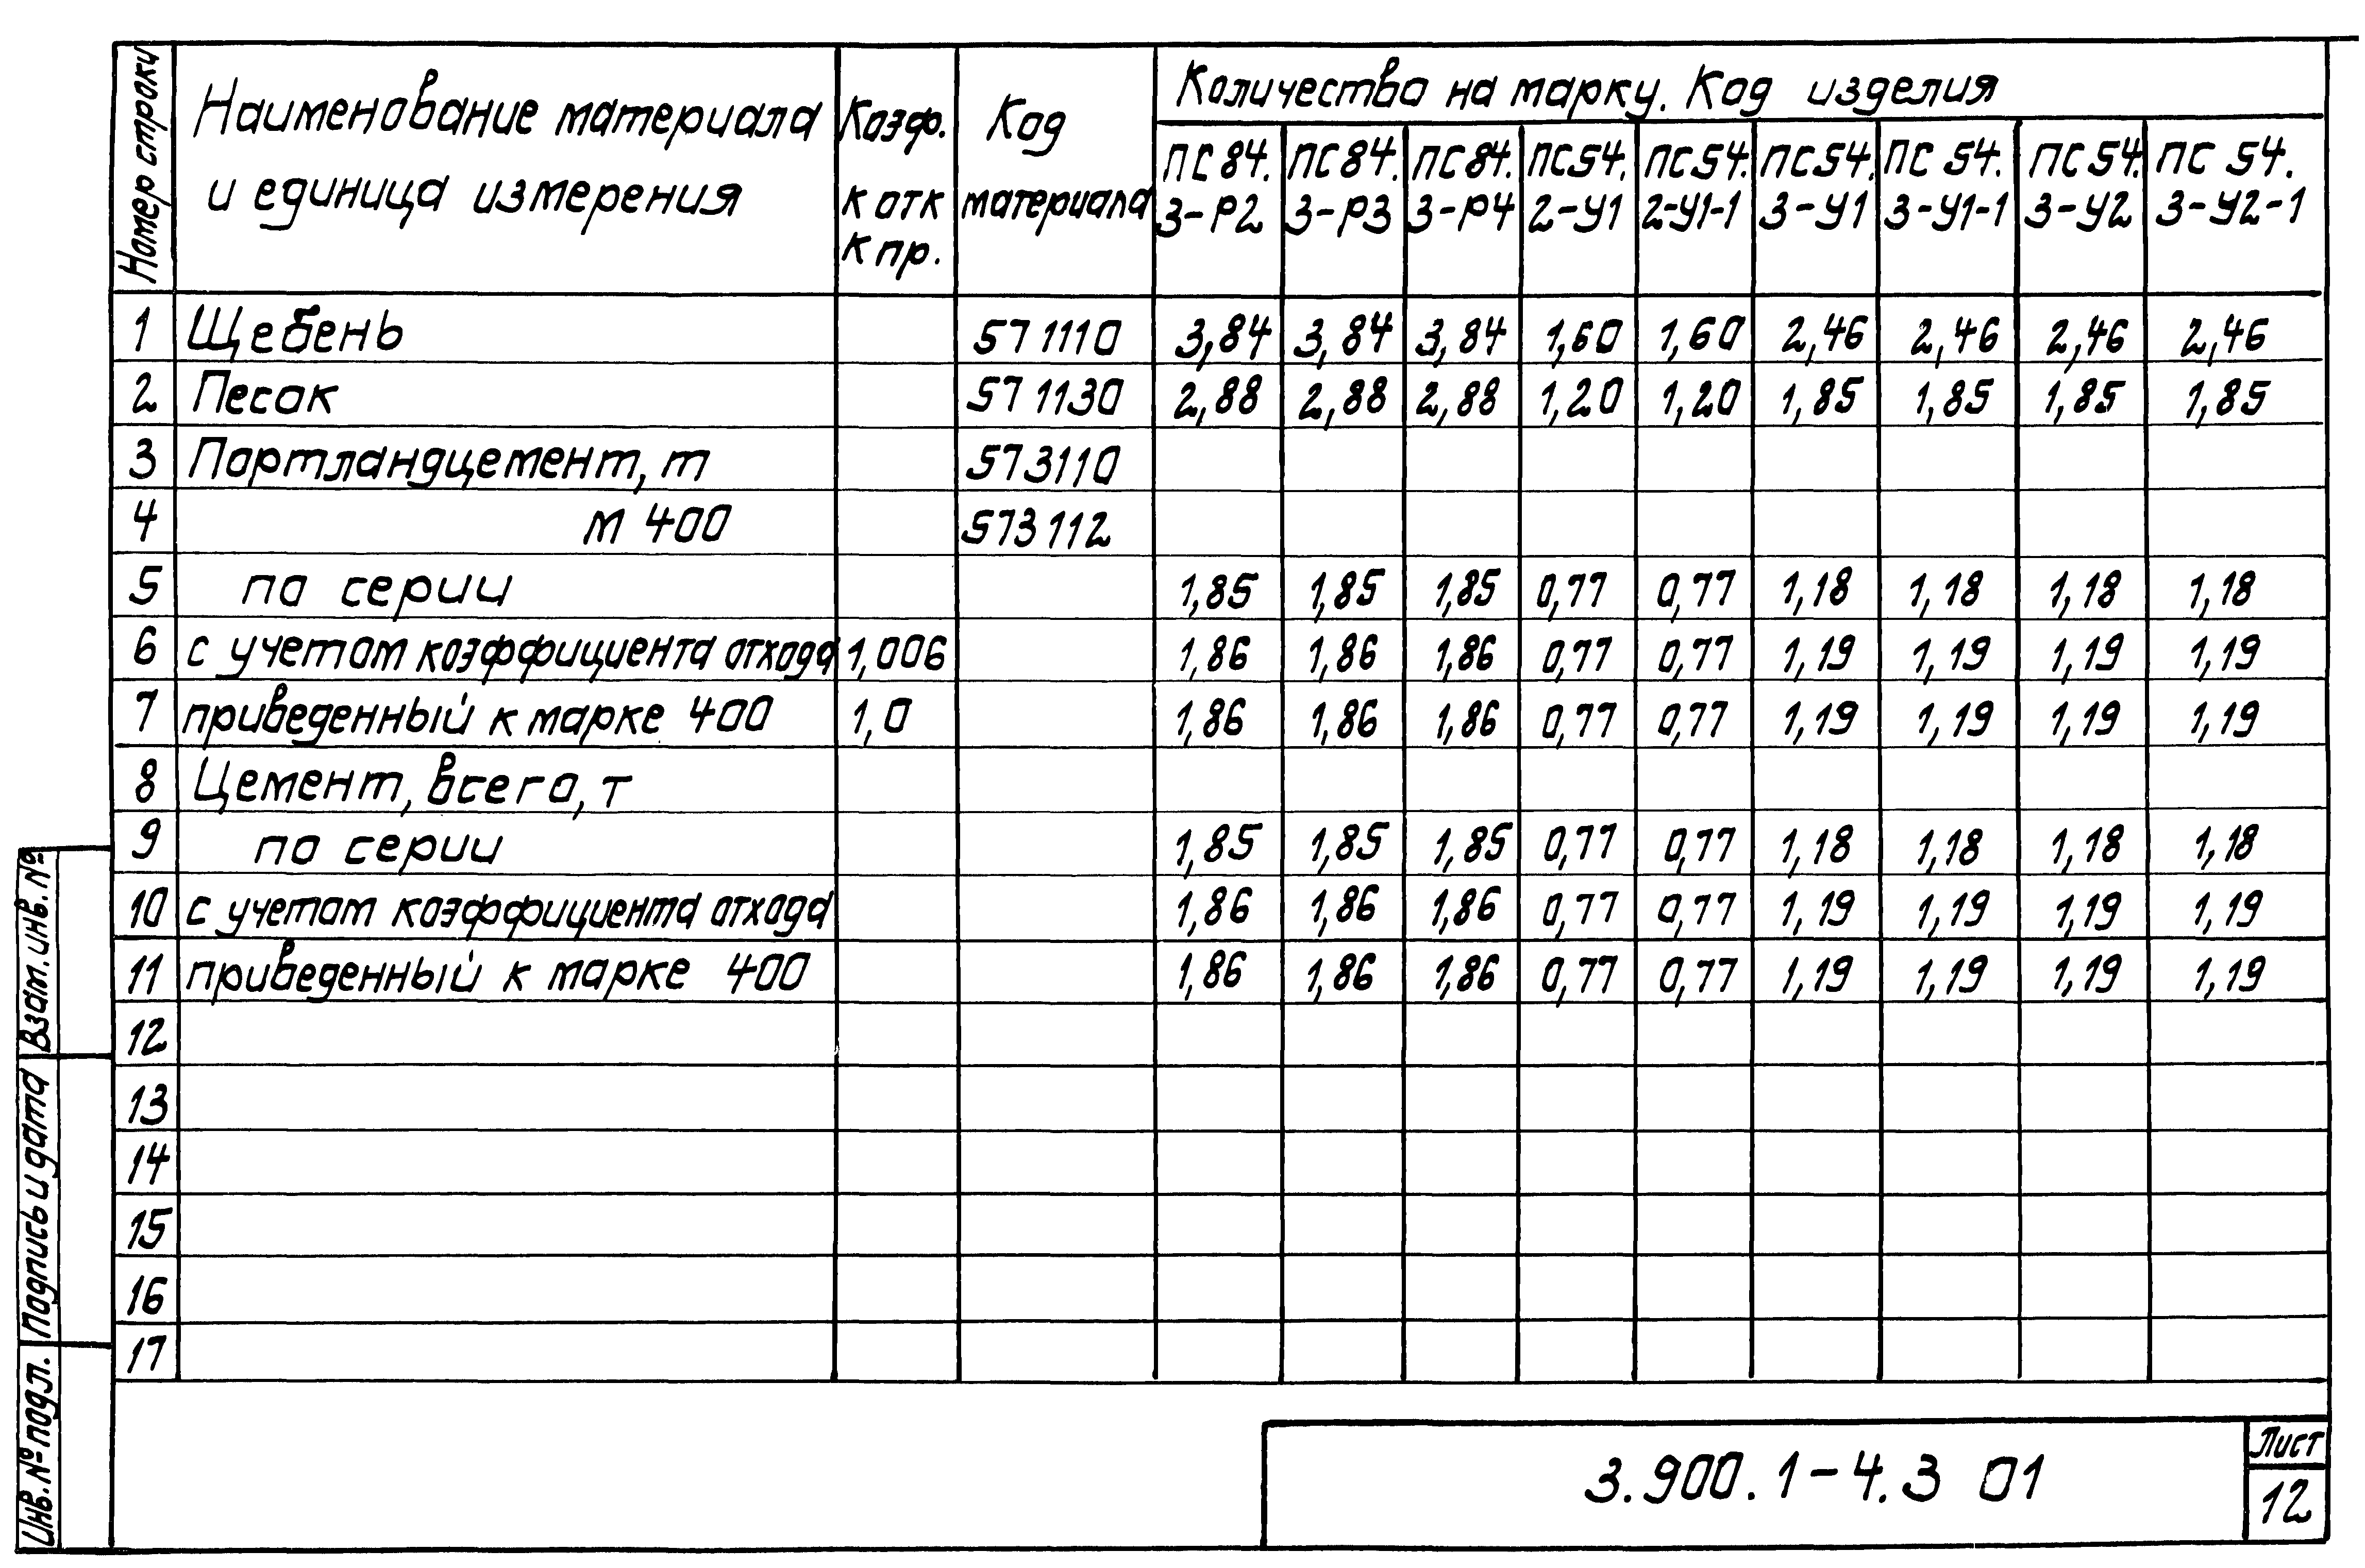 Номер строки
Наименование материала
и единица измерения
Коэф.
К отк
К пр.
Код
материала
Количество на марку. Код изделия
ПС 84. ПС 84. ПС 84. ПС 54. ПС 54. ПС 54. ПС 54. ПС 54. ПС 54.
3-Р2 3-Р3 3-Р4 2-У1 2-У1-1 3-У1 3-У1-1 3-У2 3-У2-1
1 Щебень 571110 3,84 3,84 3,84 1,60 1,60 2,46 2,46 2,46 2,46
2 Песок 571130 2,88 2,88 2,88 1,20 1,20 1,85 1,85 1,85 1,85
3 Портландцемент, т 573110
4 М 400 573112
5 по серии 1,85 1,85 1,85 0,77 0,77 1,18 1,18 1,18 1,18
6 с учетом коэффициента отхода 1,006 1,86 1,86 1,86 0,77 0,77 1,19 1,19 1,19 1,19
7 приведенный к марке 400 1,0 1,86 1,86 1,86 0,77 0,77 1,19 1,19 1,19 1,19
8 Цемент, всего, т
9 по серии 1,85 1,85 1,85 0,77 0,77 1,18 1,18 1,18 1,18
10 с учетом коэффициента отхода 1,86 1,86 1,86 0,77 0,77 1,19 1,19 1,19 1,19
11 приведенный к марке 400 1,86 1,86 1,86 0,77 0,77 1,19 1,19 1,19 1,19
12
13
14
15
16
17
Взам. инв. №
Подпись и дата
Инв. № подл.
3.900.1-4.3 01
Лист
12